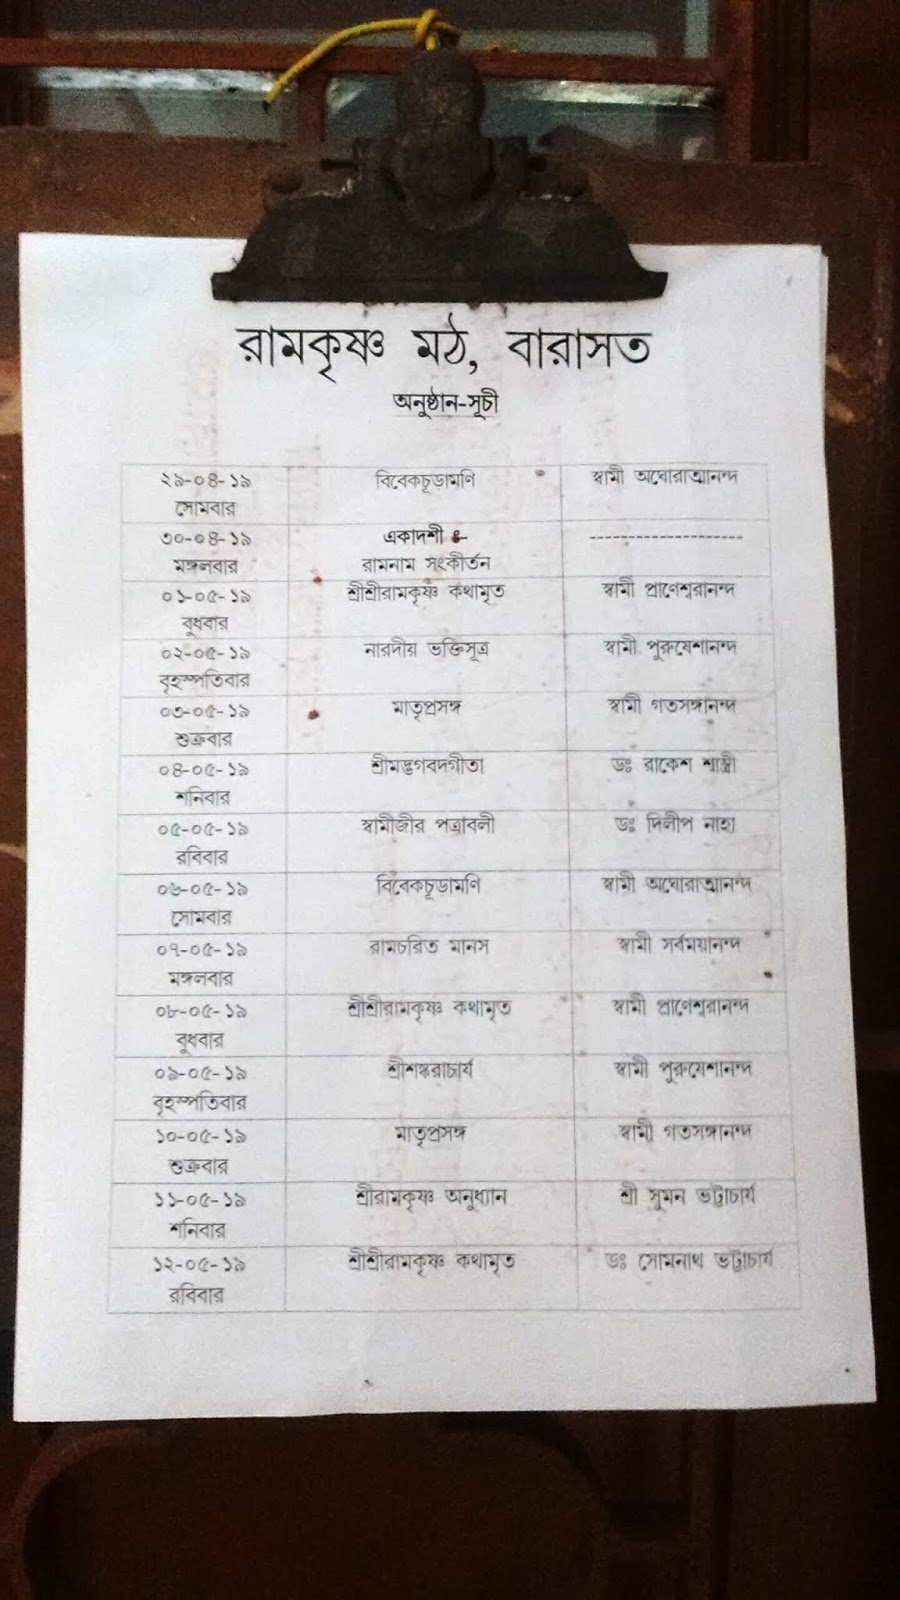 রামকৃষ্ণ মঠ, বারাসত
অনুষ্ঠান-সূচী
২৯-০৪-১৯ বিবেকচূড়ামণি স্বামী অঘোরাত্মানন্দ
সোমবার
৩০-০৪-১৯ একাদশী ৪- --------------------
মঙ্গলবার রামনাম সংকীর্তন
০১-০৫-১৯ শ্রীশ্রীরামকৃষ্ণ কথামৃত স্বামী প্রাণেশ্বরানন্দ
বুধবার
০২-০৫-১৯ নারদীয় ভক্তিসূত্র স্বামী পুরুষেশানন্দ
বৃহস্পতিবার
০৩-০৫-১৯ মাতৃপ্রসঙ্গ স্বামী গতসঙ্গানন্দ
শুক্রবার
০৪-০৫-১৯ শ্রীমদ্ভগবদগীতা ডঃ রাকেশ শাস্ত্রী
শনিবার
০৫-০৫-১৯ স্বামীজীর পত্রাবলী ডঃ দিলীপ নাহা
রবিবার
০৬-০৫-১৯ বিবেকচূড়ামণি স্বামী অঘোরাত্মানন্দ
সোমবার
০৭-০৫-১৯ রামচরিত মানস স্বামী সর্বময়ানন্দ
মঙ্গলবার
০৮-০৫-১৯ শ্রীশ্রীরামকৃষ্ণ কথামৃত স্বামী প্রাণেশ্বরানন্দ
বুধবার
০৯-০৫-১৯ শ্রীশঙ্করাচার্য স্বামী পুরুষেশানন্দ
বৃহস্পতিবার
১০-০৫-১৯ মাতৃপ্রসঙ্গ স্বামী গতসঙ্গানন্দ
শুক্রবার
১১-০৫-১৯ শ্রীরামকৃষ্ণ অনুধ্যান শ্রী সুমন ভট্টাচার্য
শনিবার
১২-০৫-১৯ শ্রীশ্রীরামকৃষ্ণ কথামৃত ডঃ সোমনাথ ভট্টাচার্য
রবিবার